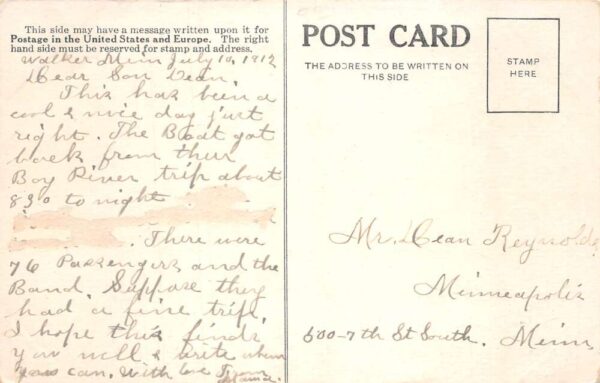 This side may have a message written upon it for
Postage in the United States and Europe. The right
hand side must be reserved for stamp and address.
Walker Minn July 10, 1912
Dear Son Dean,
This has been a
cool & nice day just
right. The Boat got
back from their
Boy River trip about
830 to night
There were
76 Passengers and the
Band. Suppose they
had a fine trip.
I hope this finds
you well & write when
you can. With love From
Mama.
POST CARD
THE ADDRESS TO BE WRITTEN ON
THIS SIDE
STAMP
HERE
Mr. Dean Reynolds,
Minneapolis
600-7th St South. Minn